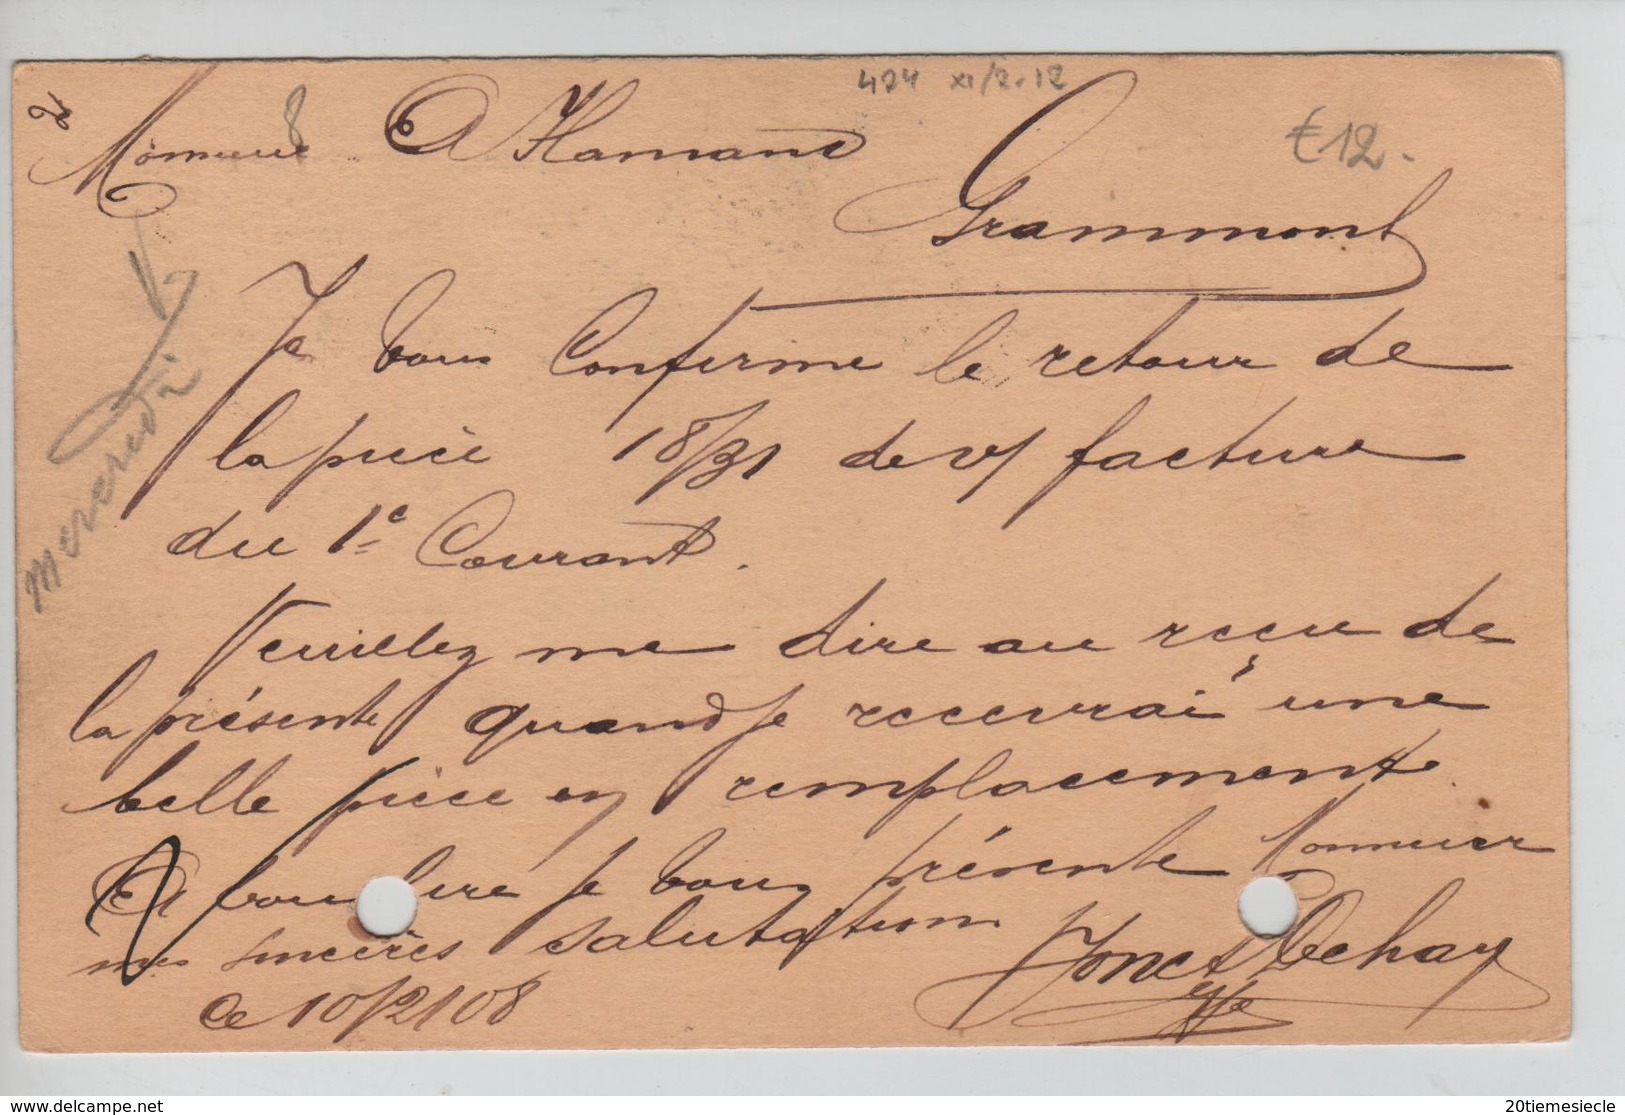 424 XI/2.12
€12.
8
Monsieur A Flamand
Grammont
Mercredi
Je vous Confirme le retour de
la pièce 18/31 de v/ facture
du 1e Courant.
Veuillez me dire au reçu de
la présente quand je recevrai une
belle pièce en remplacement
Et vous lire je vous présente Monsieur
mes sincères salutation
Dehay
ce 10/2/08
www.delcampe.net
20tiemesiecle